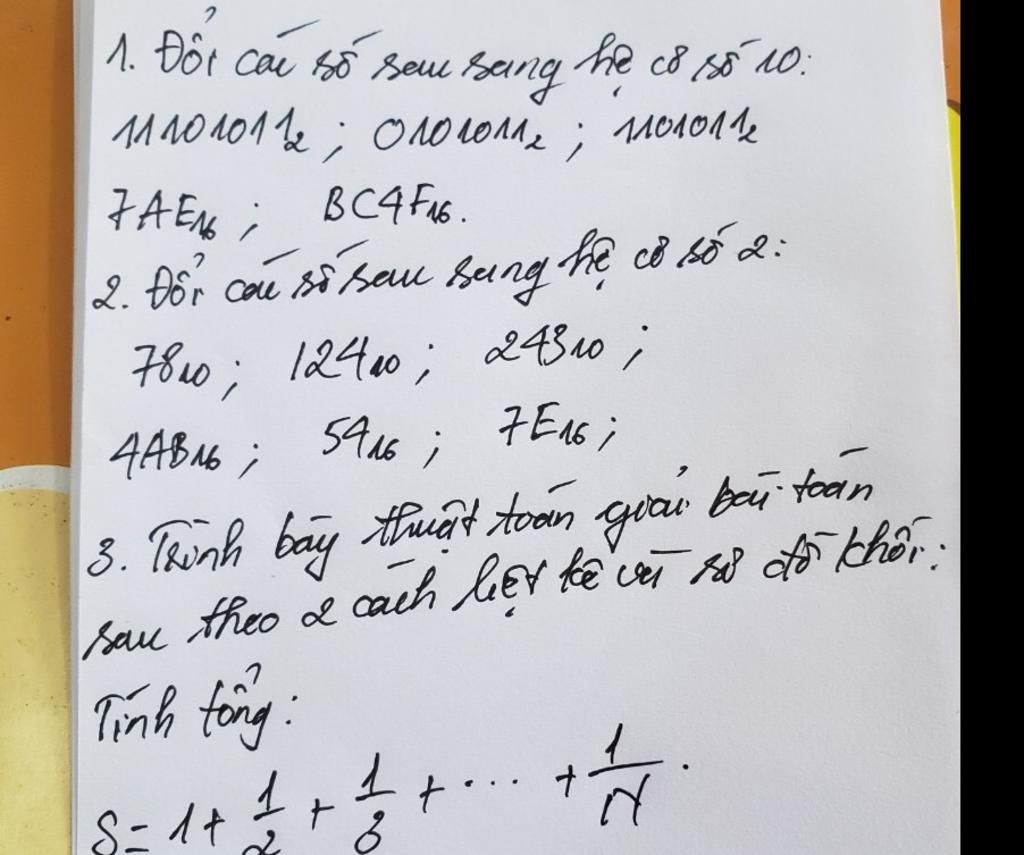 1. Đổi các số sau sang hệ cơ số 10:
11101011₂ ; 0101011₂ ; 1101011₂
7AE₁₆ ; BC4F₁₆.
2. Đổi các số sau sang hệ cơ số 2:
78₁₀ ; 124₁₀ ; 243₁₀ ;
4AB₁₆ ; 54₁₆ ; 7E₁₆ ;
3. Trình bày thuật toán giải bài toán
sau theo 2 cách liệt kê và sơ đồ khối:
Tính tổng:
S = 1 + 1/2 + 1/3 + ... + 1/N .